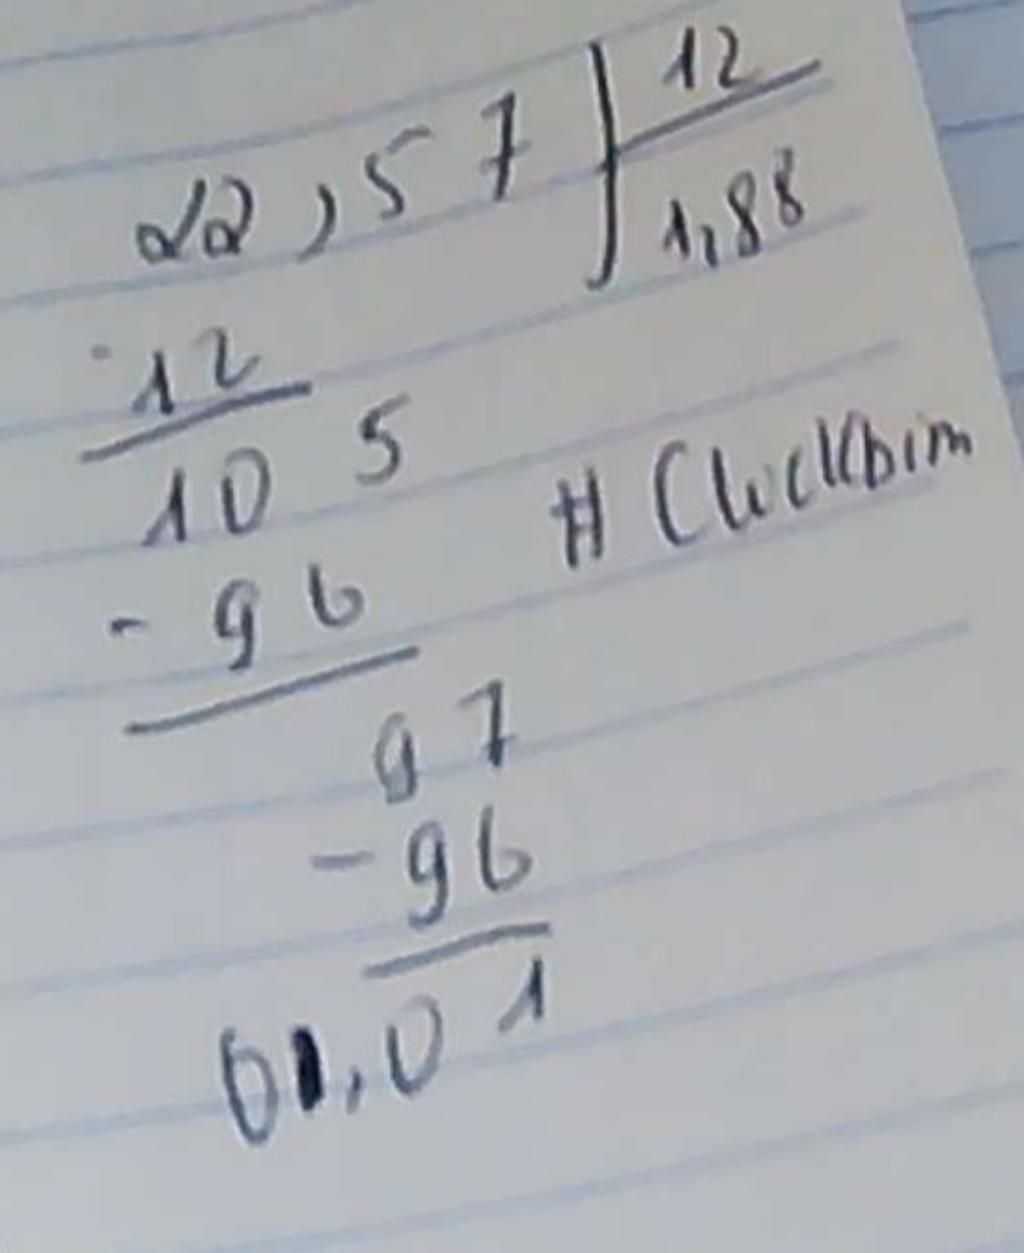 22,57 12
1,88
-12
10 5
# Clickbim
- 96
97
- 96
01,01